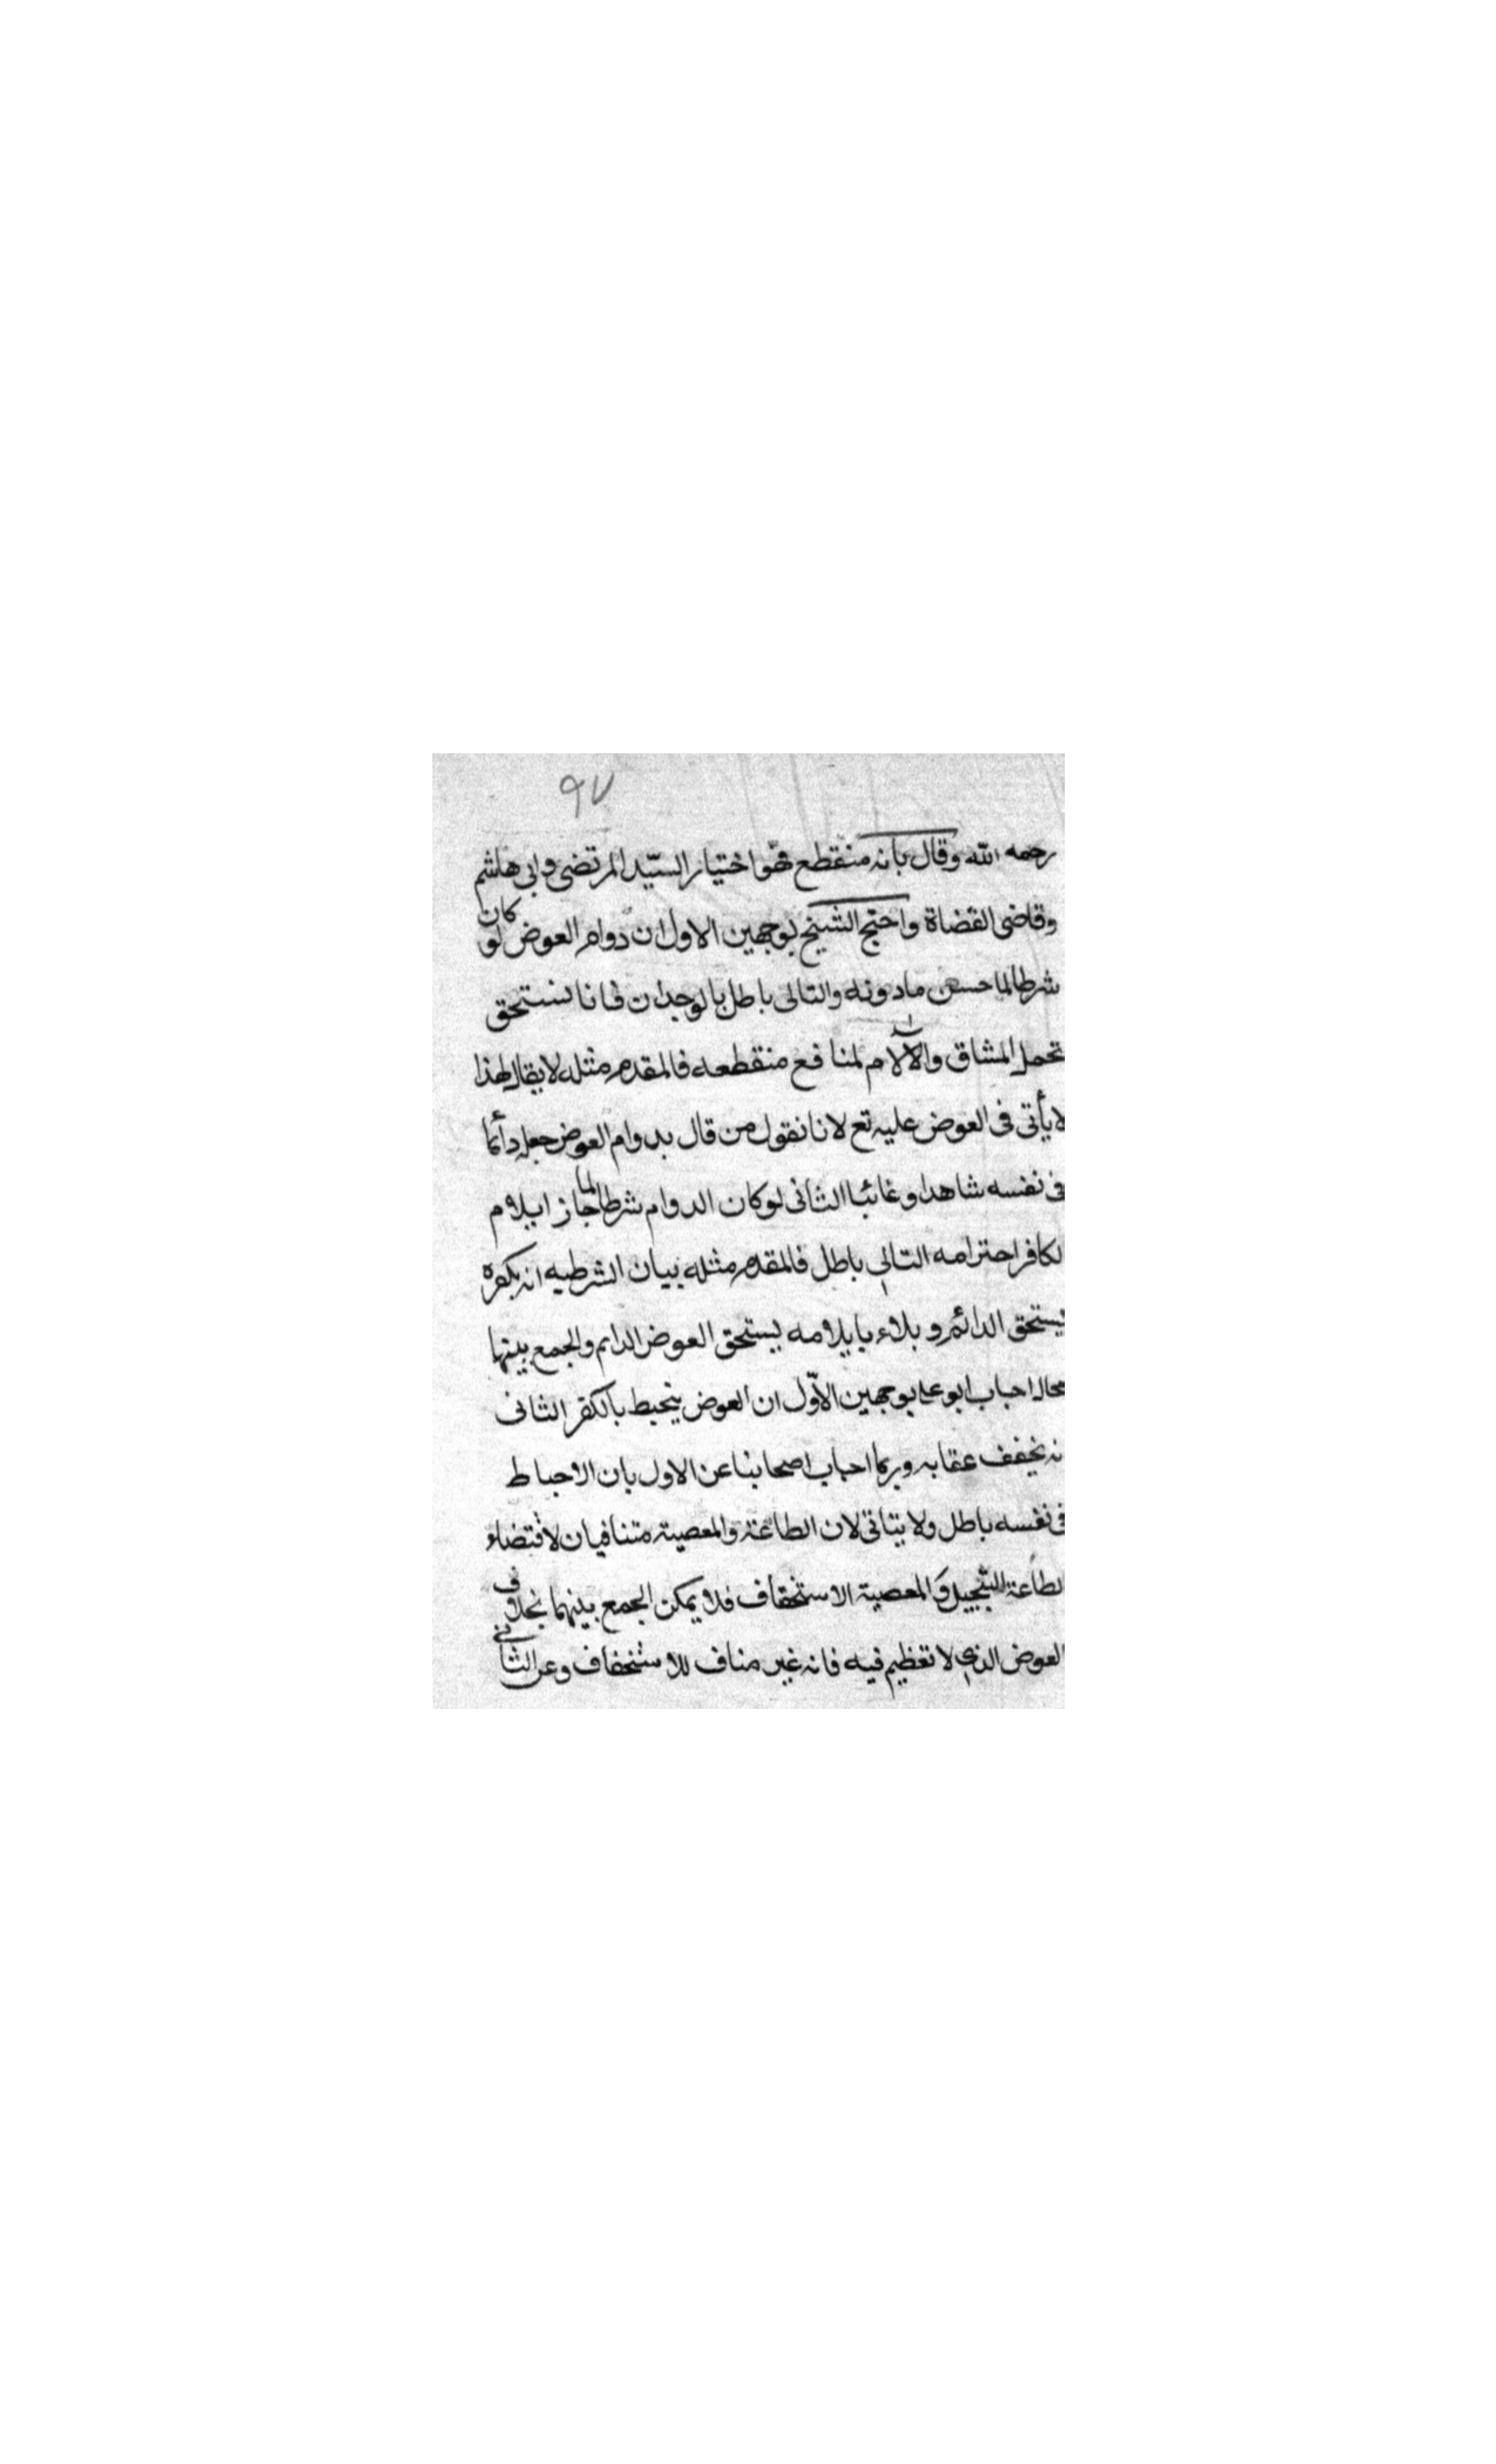 ٩٧
رحمه الله وقال بانه منقطع فهو اختيار السيّد المرتضى وابى هاشم
وقاضى القضاة واحتج الشيخ بوجهين الاول ان دوام العوض لو كان
شرطا لما حسن مادونه والتالى باطل بالوجدان فانا نستحق
تحمل المشاق والآلام لمنافع منقطعه فالمقدم مثله لا يقال هذا
لا يأتى فى العوض عليه تع لانا نقول من قال بدوام العوض جعله دائما
فى نفسه شاهدا وغائبا الثانى لو كان الدوام شرطا لما جاز ايلام
لكافر احترامه التالى باطل فالمقدم مثله بيان الشرطيه انه بكفره
يستحق الدائم و بلاء بايلامه يستحق العوض الدايم والجمع بينهما
محال احباب ابو على بوجهين الاوّل ان العوض ينحبط بالكفر الثانى
نه يخفف عقابه وربما احباب اصحابنا عن الاول بان الاحباط
فى نفسه باطل ولا يتاتى لان الطاعة والمعصية متنافيان لاقتضاء
لطاعة التبجيل وَالمعصية الاستخفاف فلا يمكن الجمع بينهما بخلاف
العوض الذي لا تعظيم فيه فانه غير مناف للاستخفاف وعن الثانى